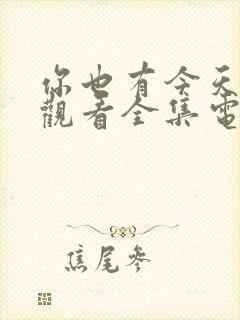 你也有今天
觀看全集電
焦尾參